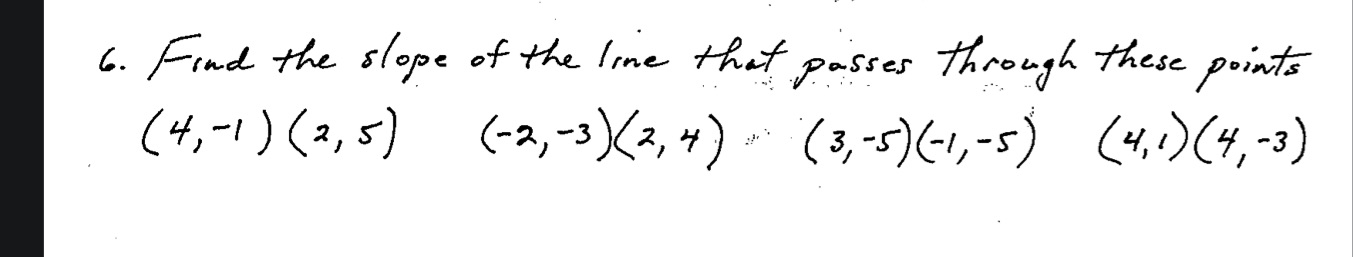 6. Find the slope of the line that passes through these points
(4,-1) (2,5) (-2,-3)(2,4) (3,-5)(-1,-5) (4,1)(4,-3)